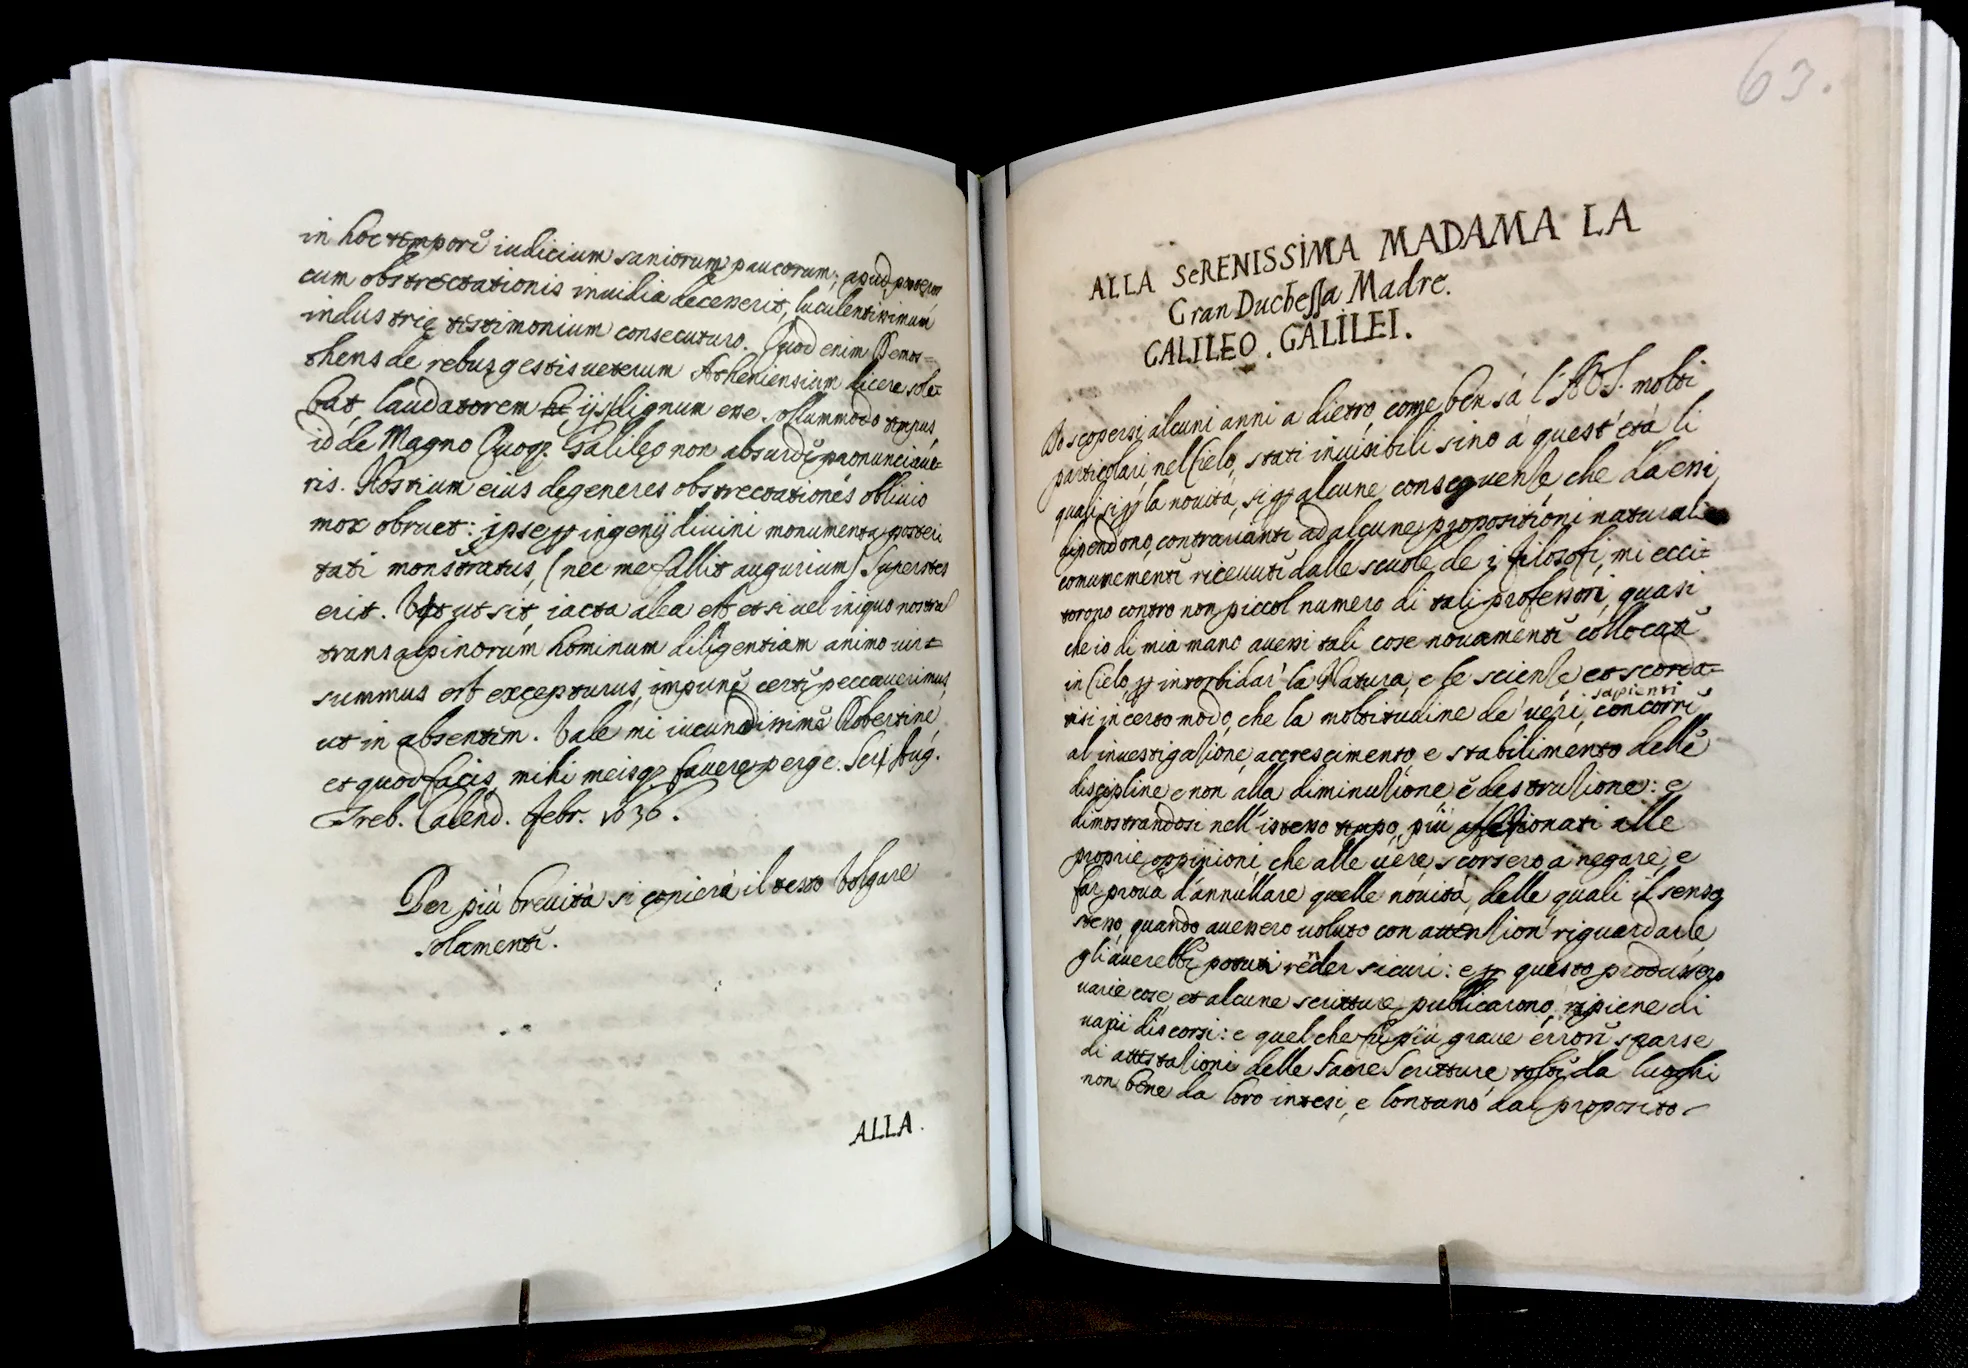 in hoc tempore iudicium saniorum paucorum; apud posteros
cum obstrectationis inuidia decesserit, luculentissimum
industrię testimonium consecuturo. Quod enim Demos=
thens de rebus gestis ueterum Atheniensium dicere sole=
bat, laudatorem ijs dignum esse ollummodo tempus,
id de Magno Quoq. Galileo non absurdè pronunciaue=
ris. Hostium eius degeneres obstrectationes obliuio
mox obruet: ipse ꝑ ingenij diuini monumenta posteri
tati monstratus, (nec me fallit augurium) Superstes
erit. Vt ut sit, iacta alea est et si uel iniquo nostra
transalpinorum hominum diligentiam animo uir=
summus est excepturus, impunè certè peccauerimus,
ut in absentem. Vale mi iucundissime Robertine,
et quod facis, mihi meisq. fauere perge. Scrꝭ Aug.
Treb. Calend. Febr. 1636.
Per più breuità si copierà il testo Volgare
solamente.
ALLA.
63.
ALLA SeRENISSIMA MADAMA LA
Gran Duchessa Madre.
GALILEO. GALILEI.
Io scopersi alcuni anni a dietro, come ben sà l'A. S. molti
particolari nel Cielo, stati inuisibili sino à quest'età li
quali si ꝑ la nouità, si ꝑ alcune conseguenze che da essi
dipendono, contrarianti ad alcune propositioni naturali
comunemente riceuute dalle scuole de i filosofi, mi ecci=
torono contro non piccol numero di tali professori, quasi
che io di mia mano auessi tali cose nouamente collocate
in Cielo, ꝑ intorbidar la Natura, e le scienze et scorda=
sapienti
tisi in certo modo, che la moltitudine de' ueri, concorre
al inuestigazione, accrescimento, e stabilimento delle
discipline e non alla diminuzione è destruzione: e
dimostrandosi nell'istesso tempo, più affezionati alle
proprie oppinioni, che alle uere, scorsero a negare, e
far proua d'annullare quelle nouità, delle quali il senso
stesso, quando auessero uoluto con attenzion' riguardarle,
gli auerebbe potuti rēder sicuri: e ꝑ questo produssero
uarie cose, et alcune scritture publicarono, ripiene di
uani discorsi: e quel che fù più graue errore sparse
di attestazioni delle Sacre Scritture tolte da luoghi
non bene da loro intesi, e lontano dal proposito